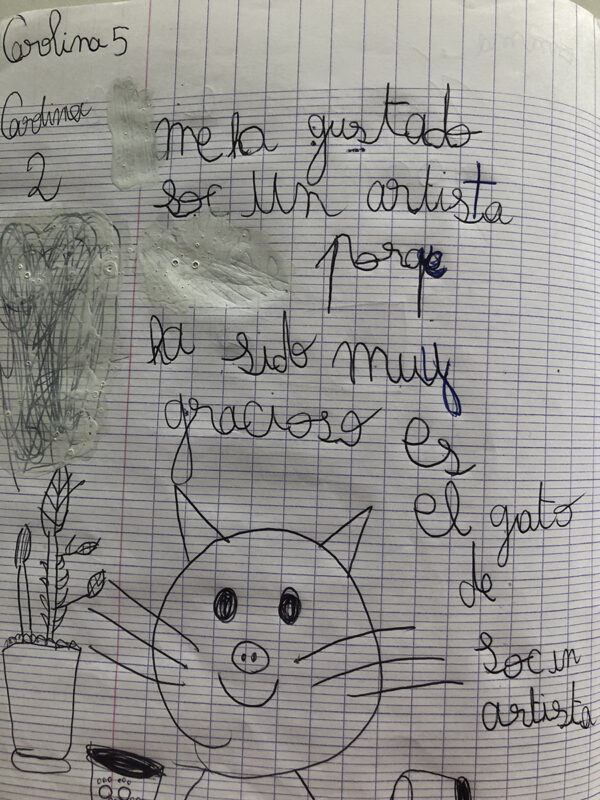 Carolina 5
Carolina
2
me ha gustado
soc un artista
porqe
ha sido muy
gracioso es
el gato
de
soc un
artista